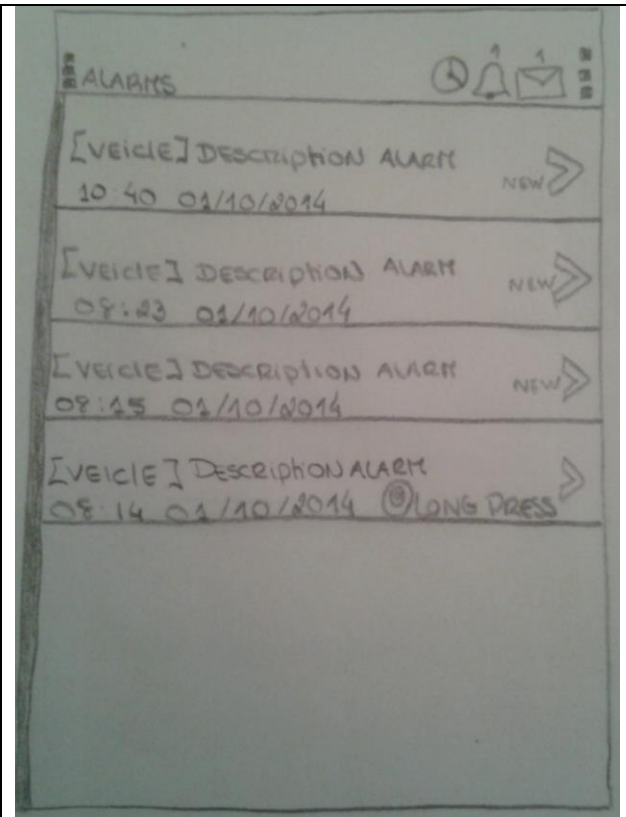 ALARMS 1 1
[VEICLE] DESCRIPTION ALARM
NEW
10:40 01/10/2014
[VEICLE] DESCRIPTION ALARM
NEW
08:23 01/10/2014
[VEICLE] DESCRIPTION ALARM
NEW
08:15 01/10/2014
[VEICLE] DESCRIPTION ALARM
08:14 01/10/2014 LONG PRESS